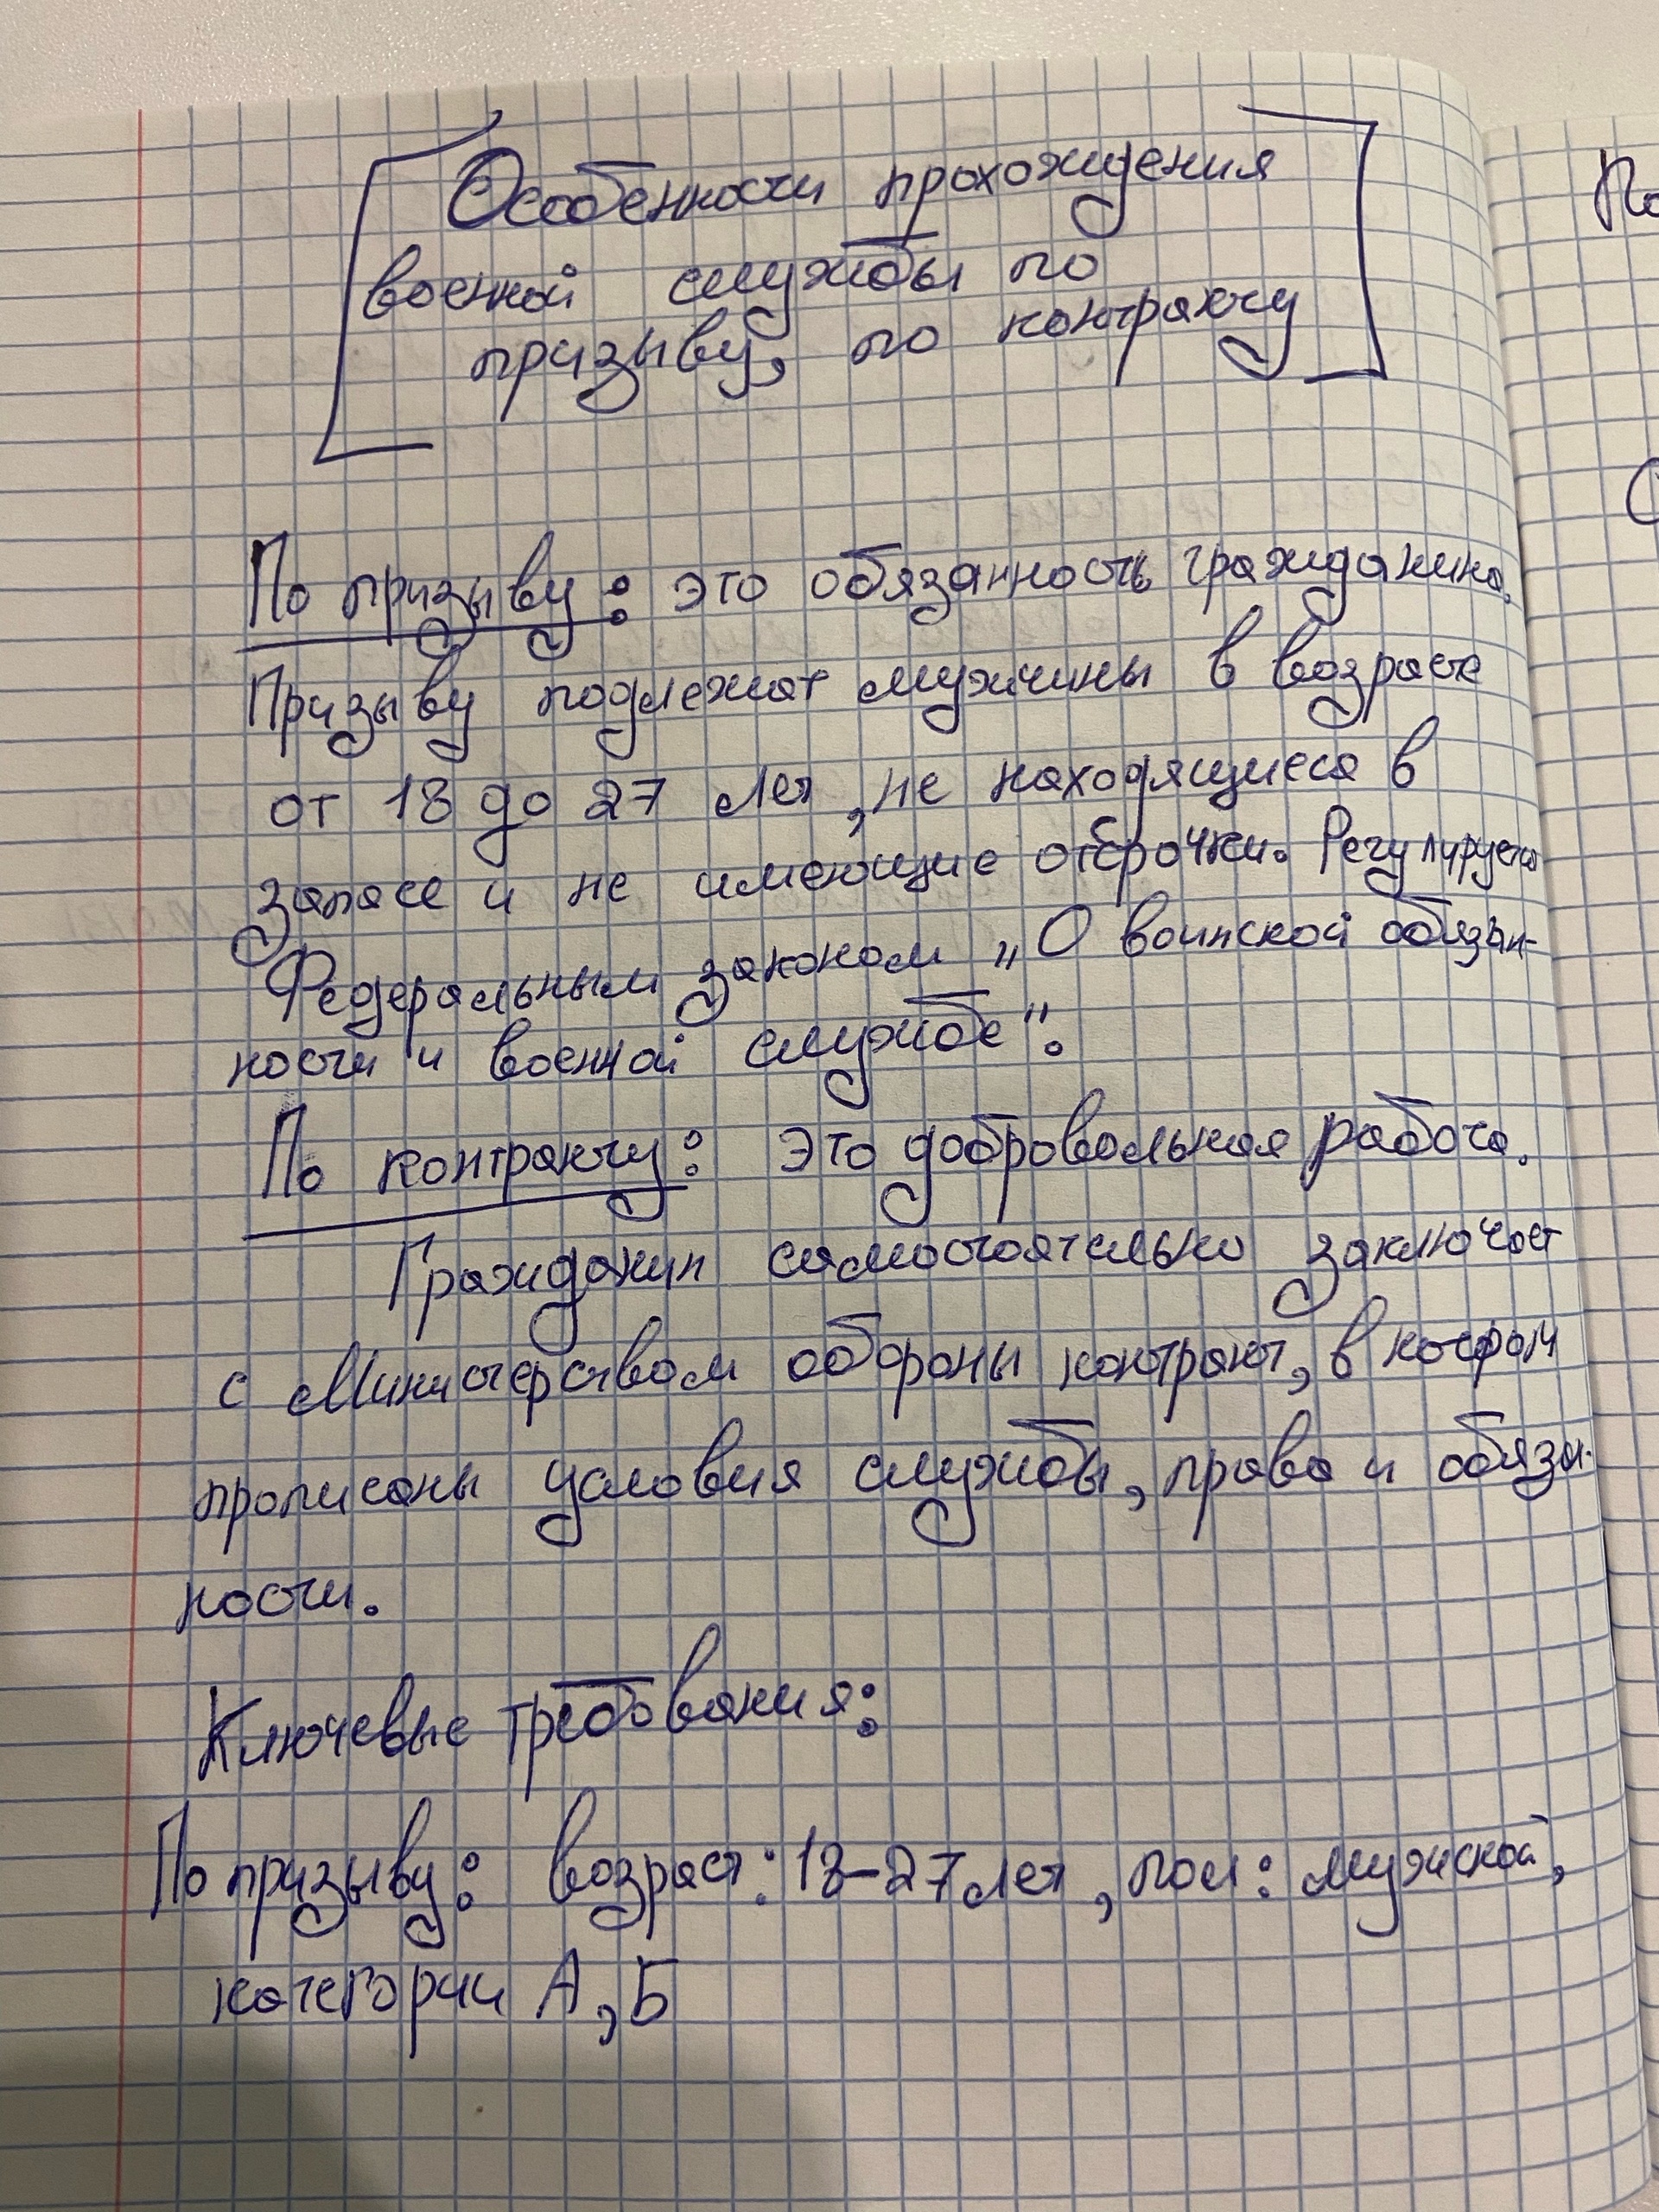 Особенности прохождения
военной службы по
призыву, по контракту
По призыву: это обязанность гражданина.
Призыву подлежат мужчины в возрасте
от 18 до 27 лет, не находящиеся в
запасе и не имеющие отсрочки. Регулируется
Федеральным законом „О воинской обязан-
ности и военной службе".
По контракту: это добровольная работа.
Гражданин самостоятельно заключает
с Министерством обороны контракт, в котором
прописаны условия службы, права и обязан-
ности.
Ключевые требования:
По призыву: возраст: 18-27 лет, пол: мужской,
категории А, Б
По